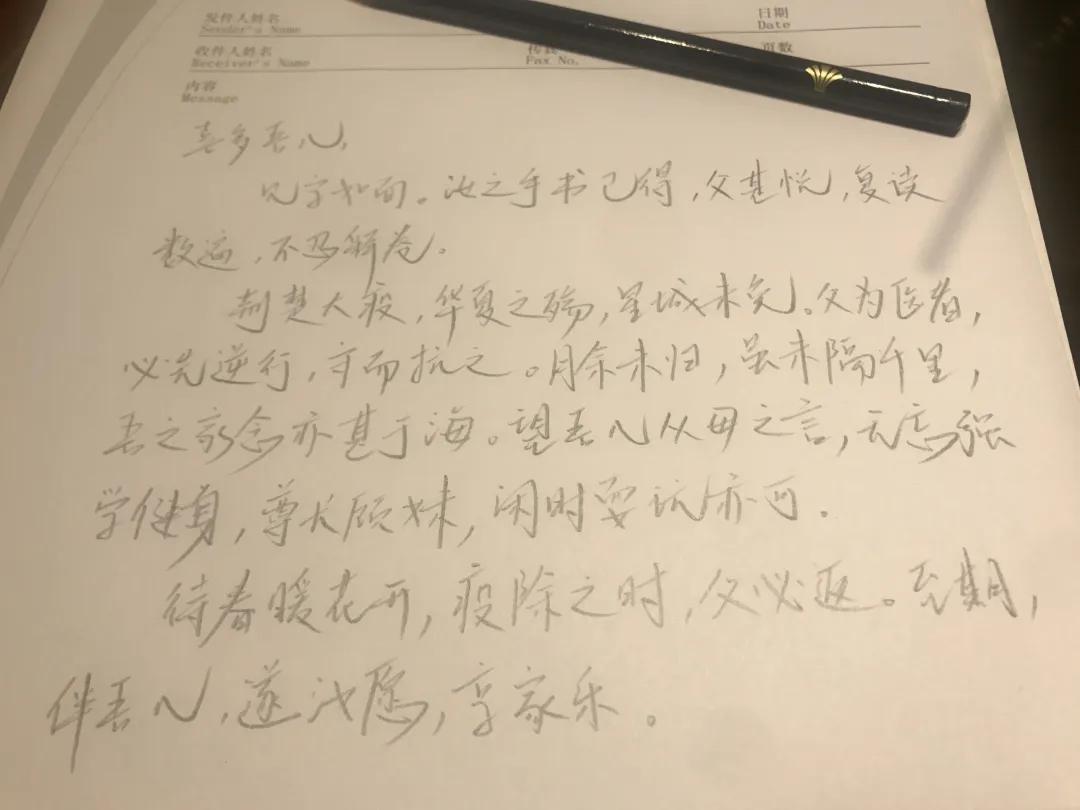 发件人姓名 日期
Sender's Name Date
收件人姓名 传真 页数
Receiver's Name Fax No.
内容
Message
喜多吾儿,
见字如面。汝之手书已得,父甚悦,复读
数遍,不忍释卷。
荆楚大疫,华夏之殇,星城未免。父为医者,
必先逆行,守而抗之。月余未归,虽未隔千里,
吾之家念亦甚于海。望吾儿从母之言,无忘强
学健身,尊长顾妹,闲时耍玩亦可.
待春暖花开,疫除之时,父必返。至期,
伴吾儿,遂汝愿,享家乐。